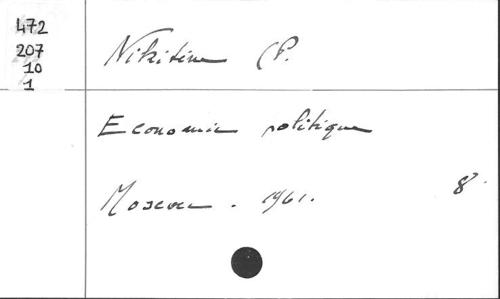 472
207
10
1
Nikitine (P.
Economie politique
Moscou. 1961. 8°